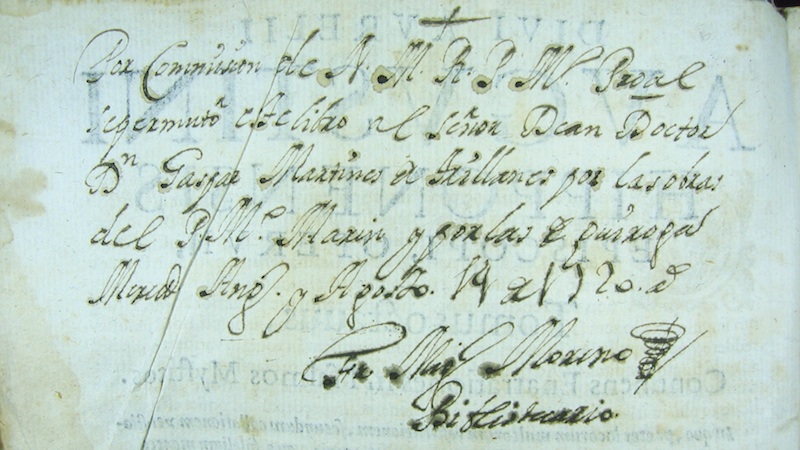 Por Commision de N. M. R. P. Mº. Proal
se permutó este libro al señor Dean Doctor
Dn Gaspar Martines de Trillanes por las obras
del P. Mº. Marin y por las de quiroga
Merced Ang. y Agosto. 14 de 1720. as
Fr. Migl Moreno
Bibliotecario.
DIVI AVRELII
AVGVSTINI
HIPPONENSIS
EPISCOPI, OPERVM
Tomus octauus
Continens Enarrationes in Psalmos Mysticos.